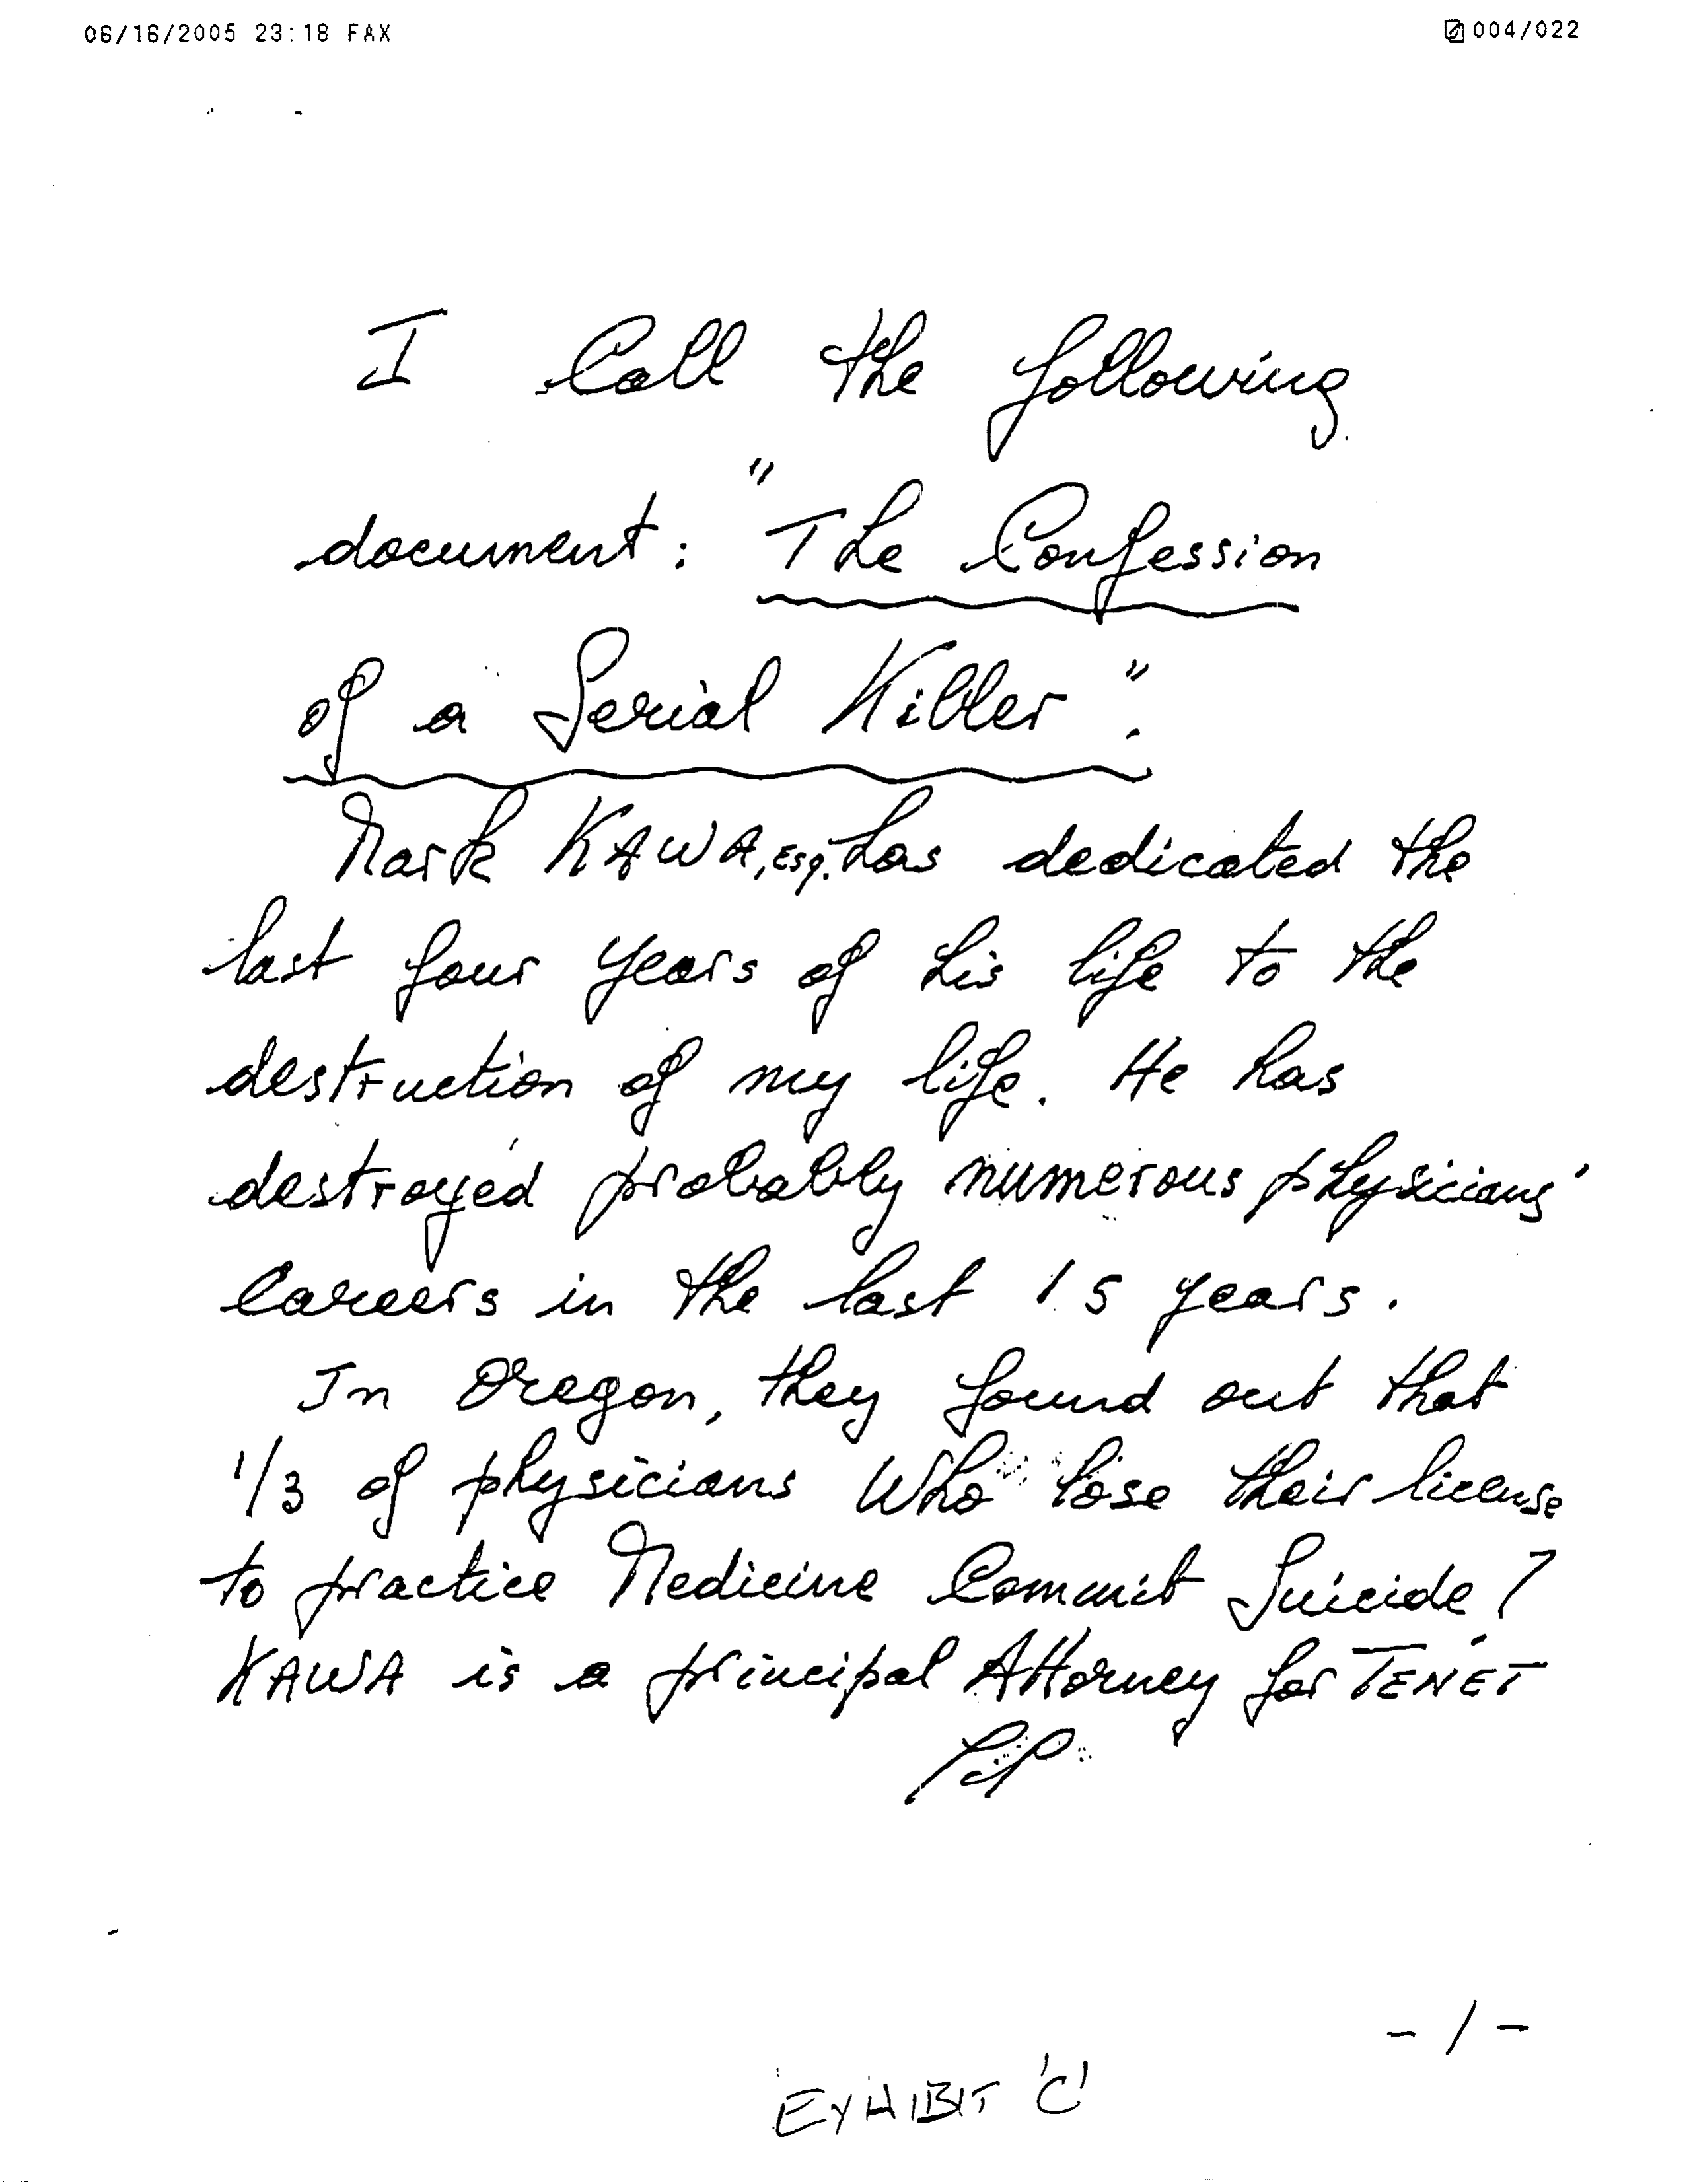 06/16/2005 23:18 FAX 004/022
I Call the following
document: "The Confession
of a Serial Killer".
Mark KAWA, Esq. has dedicated the
last four years of his life to the
destruction of my life. He has
destroyed probably numerous physicians'
careers in the last 15 years.
In Oregon, they found out that
1/3 of physicians who lose their license
to practice Medicine Commit Suicide!
KAWA is a principal Attorney for TENET
- 1 -
EXHIBIT 'C'